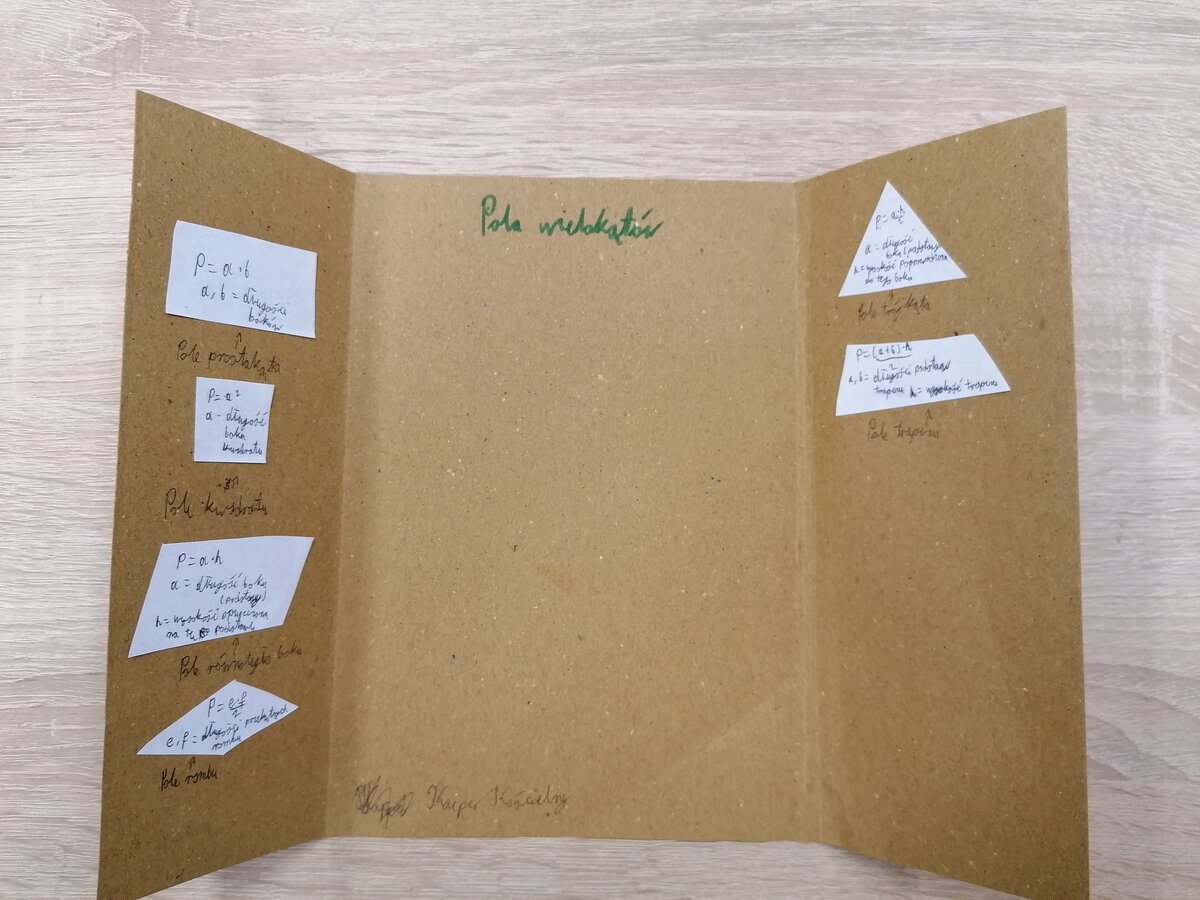 Pola wielokątów
P = a · b
a, b = długości
boków
↑
Pole prostokąta
P = a²
a - długość
boku
kwadratu
↑
Pole kwadratu
P = a · h
a = długość boku
(podstawy)
h = wysokość opuszczona
na tę podstawę
↑
Pole równoległoboku
P = e·f/2
e, f = długości przekątnych
rombu
↑
Pole rombu
Kacper Kościelny
P = a·h/2
a = długość
boku (podstawy)
h = wysokość poprowadzona
do tego boku
↑
Pole trójkąta
P = (a+b)·h/2
a, b = długości podstaw
trapezu h = wysokość trapezu
↑
Pole trapezu